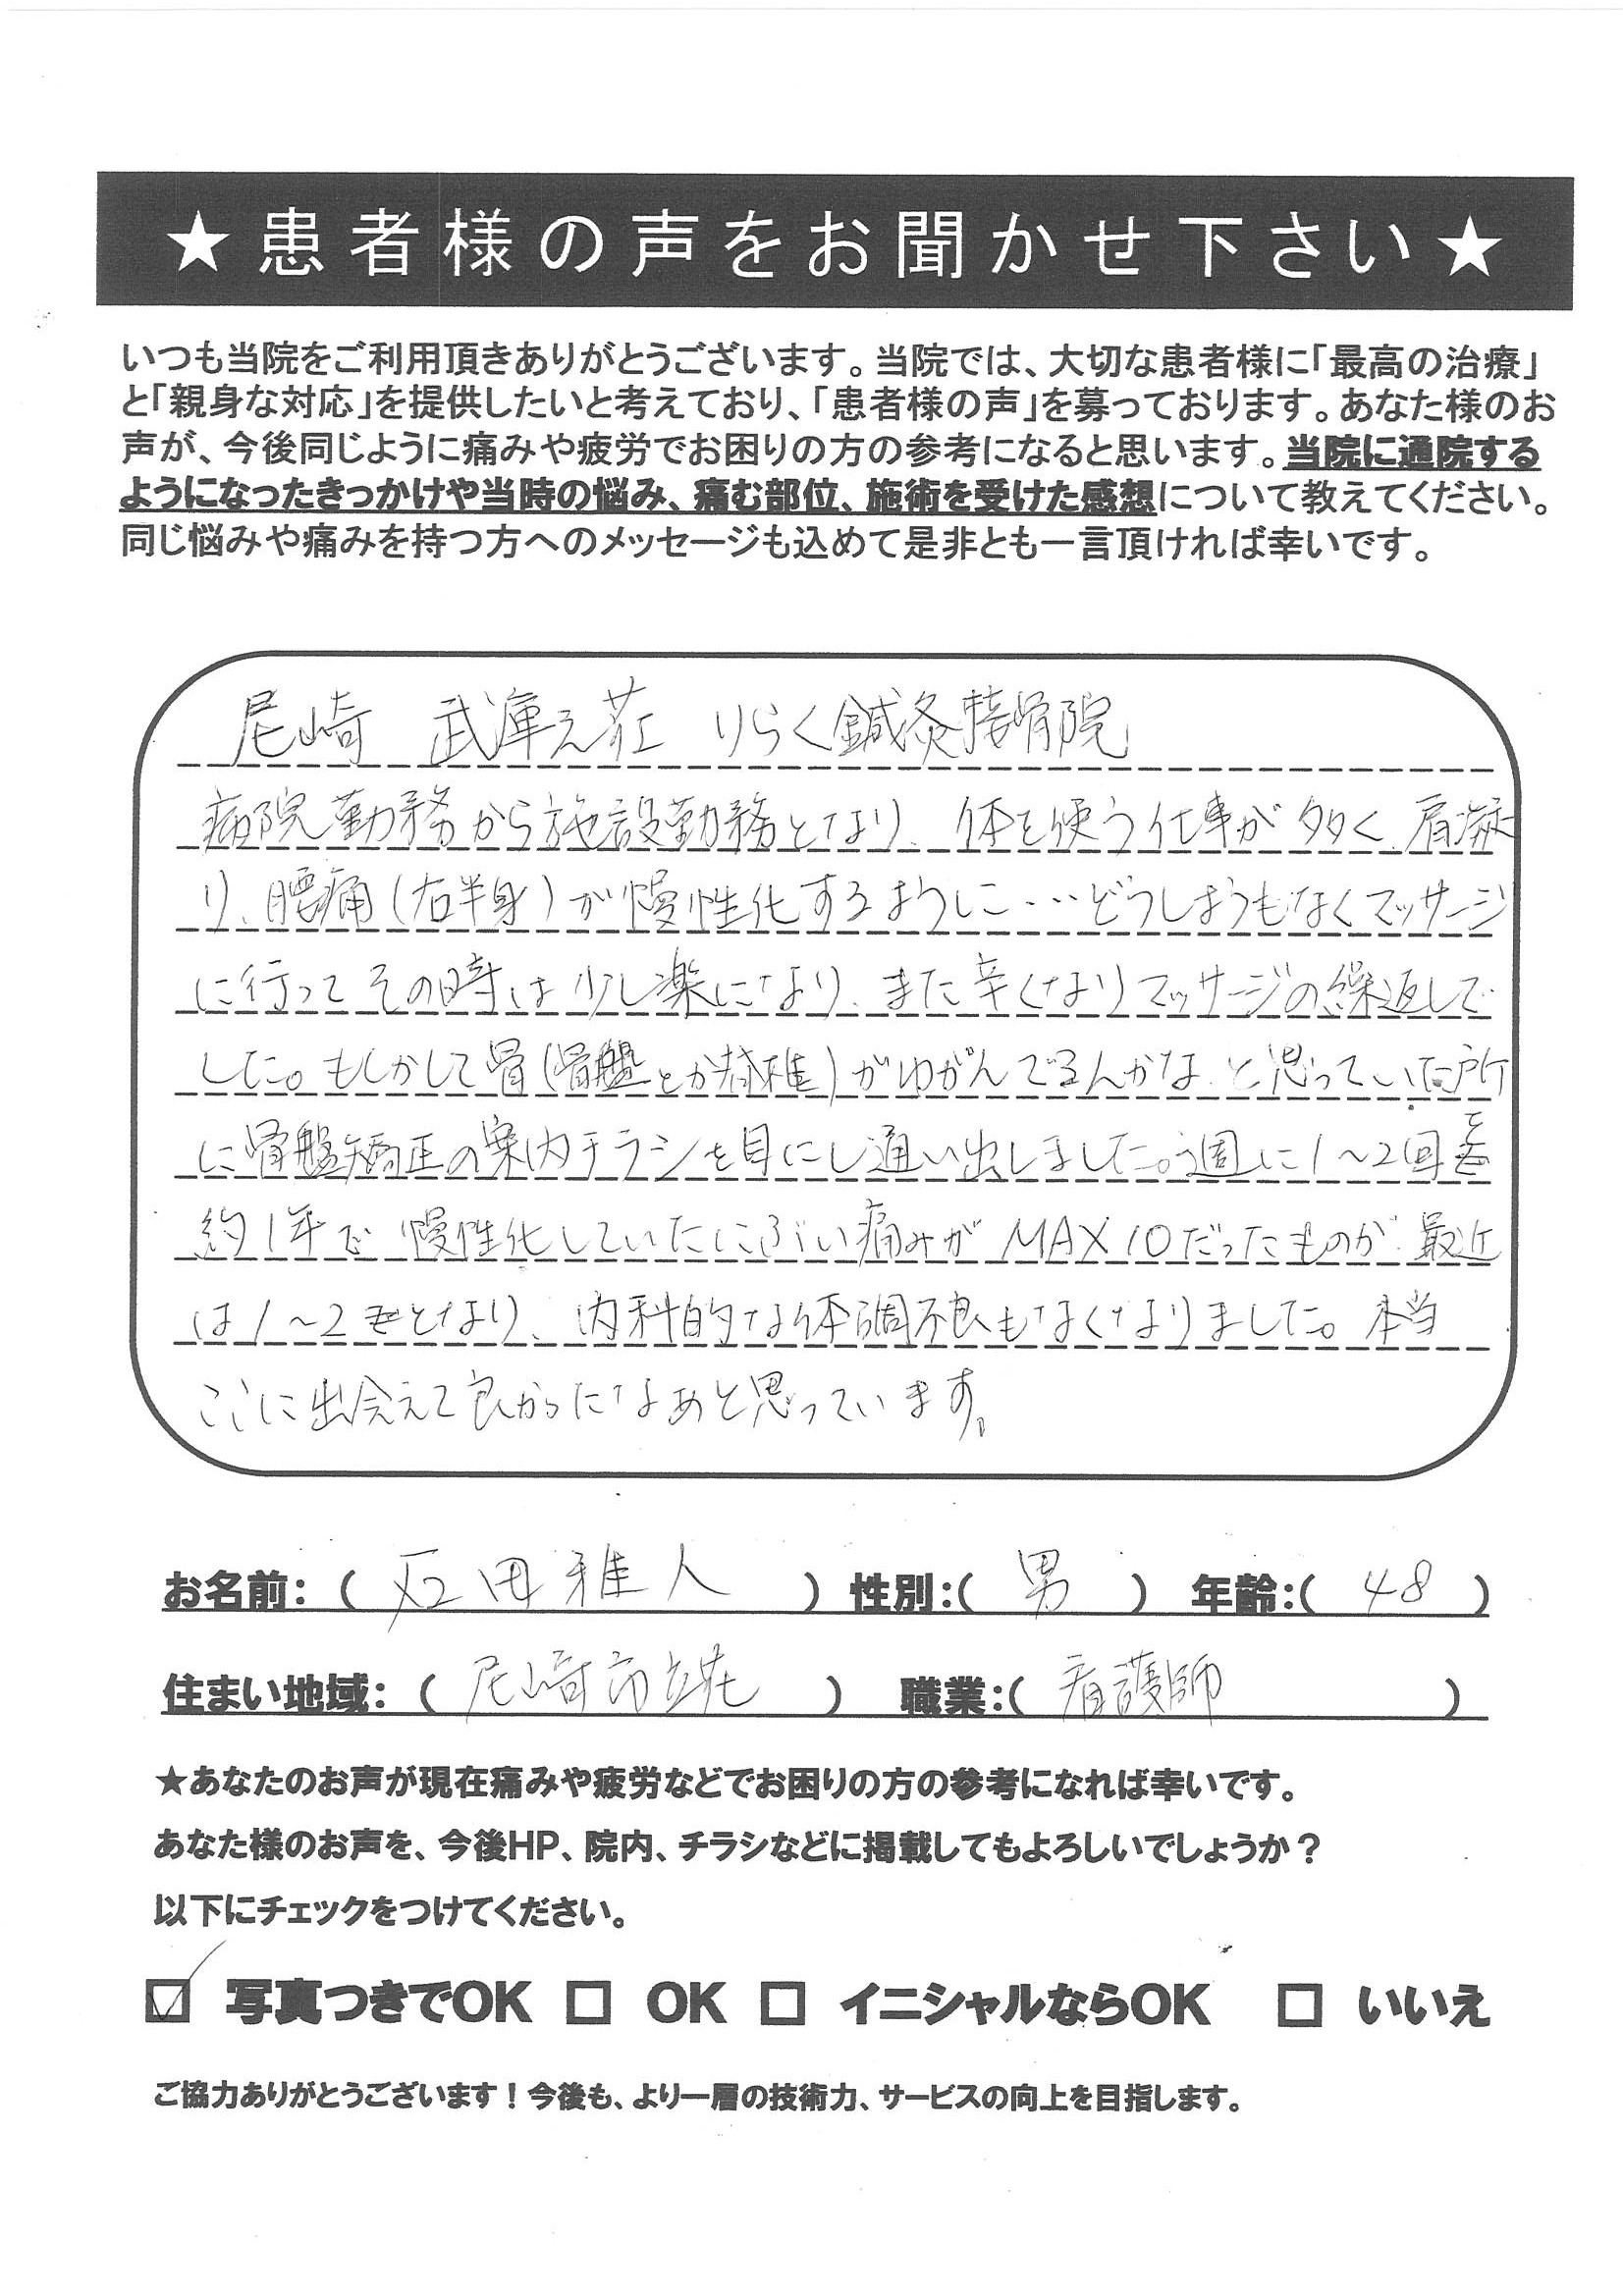 ★患者様の声をお聞かせ下さい★
いつも当院をご利用頂きありがとうございます。当院では、大切な患者様に「最高の治療」
と「親身な対応」を提供したいと考えており、「患者様の声」を募っております。あなた様のお
声が、今後同じように痛みや疲労でお困りの方の参考になると思います。当院に通院する
ようになったきっかけや当時の悩み、痛む部位、施術を受けた感想について教えてください。
同じ悩みや痛みを持つ方へのメッセージも込めて是非とも一言頂ければ幸いです。
尼崎 武庫之荘 りらく鍼灸接骨院
病院勤務から施設勤務となり、体を使う仕事が多く、肩凝
り、腰痛(右半身)が慢性化するように…どうしようもなくマッサージ
に行ってその時は少し楽になり、また辛くなりマッサージの繰返しで
した。もしかして骨(骨盤とか脊椎)がゆがんでるんかな、と思っていた所
に骨盤矯正の案内チラシを目にし通い出しました。週に1〜2回を
約1年で慢性化していたにぶい痛みがMAX10だったものが、最近
は1〜2となり、内科的な体調不良もなくなりました。本当
ここに出会えて良かったなあと思っています。
お名前:( 石田雅人 ) 性別:( 男 ) 年齢:( 48 )
住まい地域:( 尼崎市 ) 職業:( 看護師 )
★あなたのお声が現在痛みや疲労などでお困りの方の参考になれば幸いです。
あなた様のお声を、今後HP、院内、チラシなどに掲載してもよろしいでしょうか?
以下にチェックをつけてください。
☑ 写真つきでOK □ OK □ イニシャルならOK □ いいえ
ご協力ありがとうございます!今後も、より一層の技術力、サービスの向上を目指します。